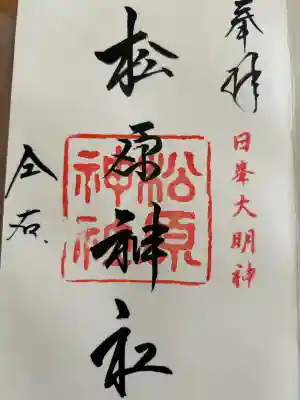 奉拝
日峯大明神
松原神社
松原
神社
佐嘉